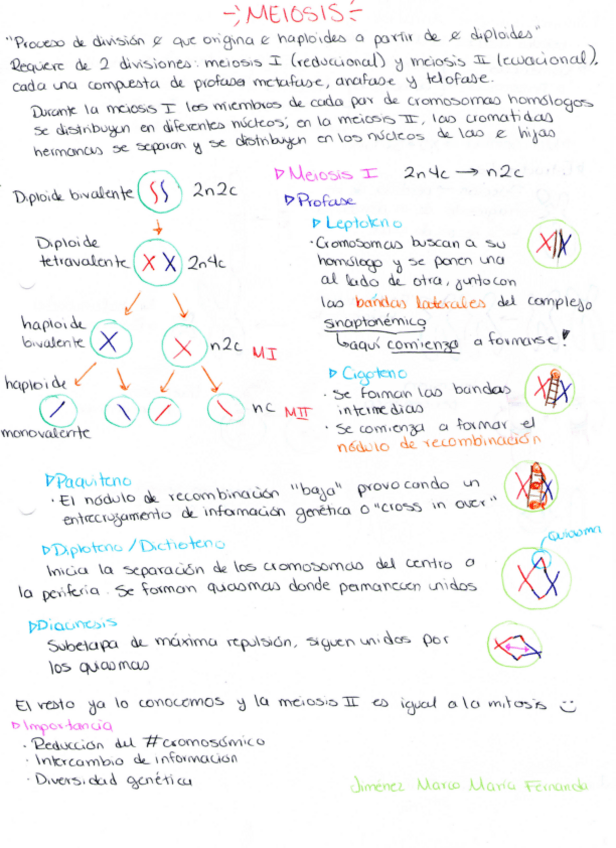 MEIOSIS
"Proceso de división ¢ que origina ¢ haploides a partir de ¢ diploides"
Requiere de 2 divisiones: meiosis I (reducional) y meiosis II (ecuacional),
cada una compuesta de profase metafase, anafase y telofase.
Durante la meiosis I los miembros de cada par de cromosomas homólogos
se distribuyen en diferentes núcleos; en la meiosis II, las cromatidas
hermanas se separan y se distribuyen en los núcleos de las ¢ hijas
Meiosis I 2n4c → n2c
Diploide bivalente 2n2c
Profase
Leptoteno
Diploide
tetravalente 2n4c
· Cromosomas buscan a su
homólogo y se ponen una
al lado de otra, junto con
las bandas laterales del complejo
snaptonémico
↳ aquí comienza a formarse!
haploide
bivalente n2c MI
Cigoteno
· Se forman las bandas
intermedias
· Se comienza a formar el
nódulo de recombinación
haploide
monovalente nc MII
Paquiteno
· El nódulo de recombinación "baja" provocando un
entrecruzamiento de información genética o "cross in over"
Diploteno / Dictioteno
Quiasma
Inicia la separación de los cromosomas del centro a
la periferia. Se forman quiasmas donde permanecen unidos
Diacinesis
Subetapa de máxima repulsión, siguen unidos por
los quiasmas
El resto ya lo conocemos y la meiosis II es igual a la mitosis
Importancia
· Reducción del #cromosómico
· Intercambio de información
· Diversidad genética
Jiménez Marco María Fernanda